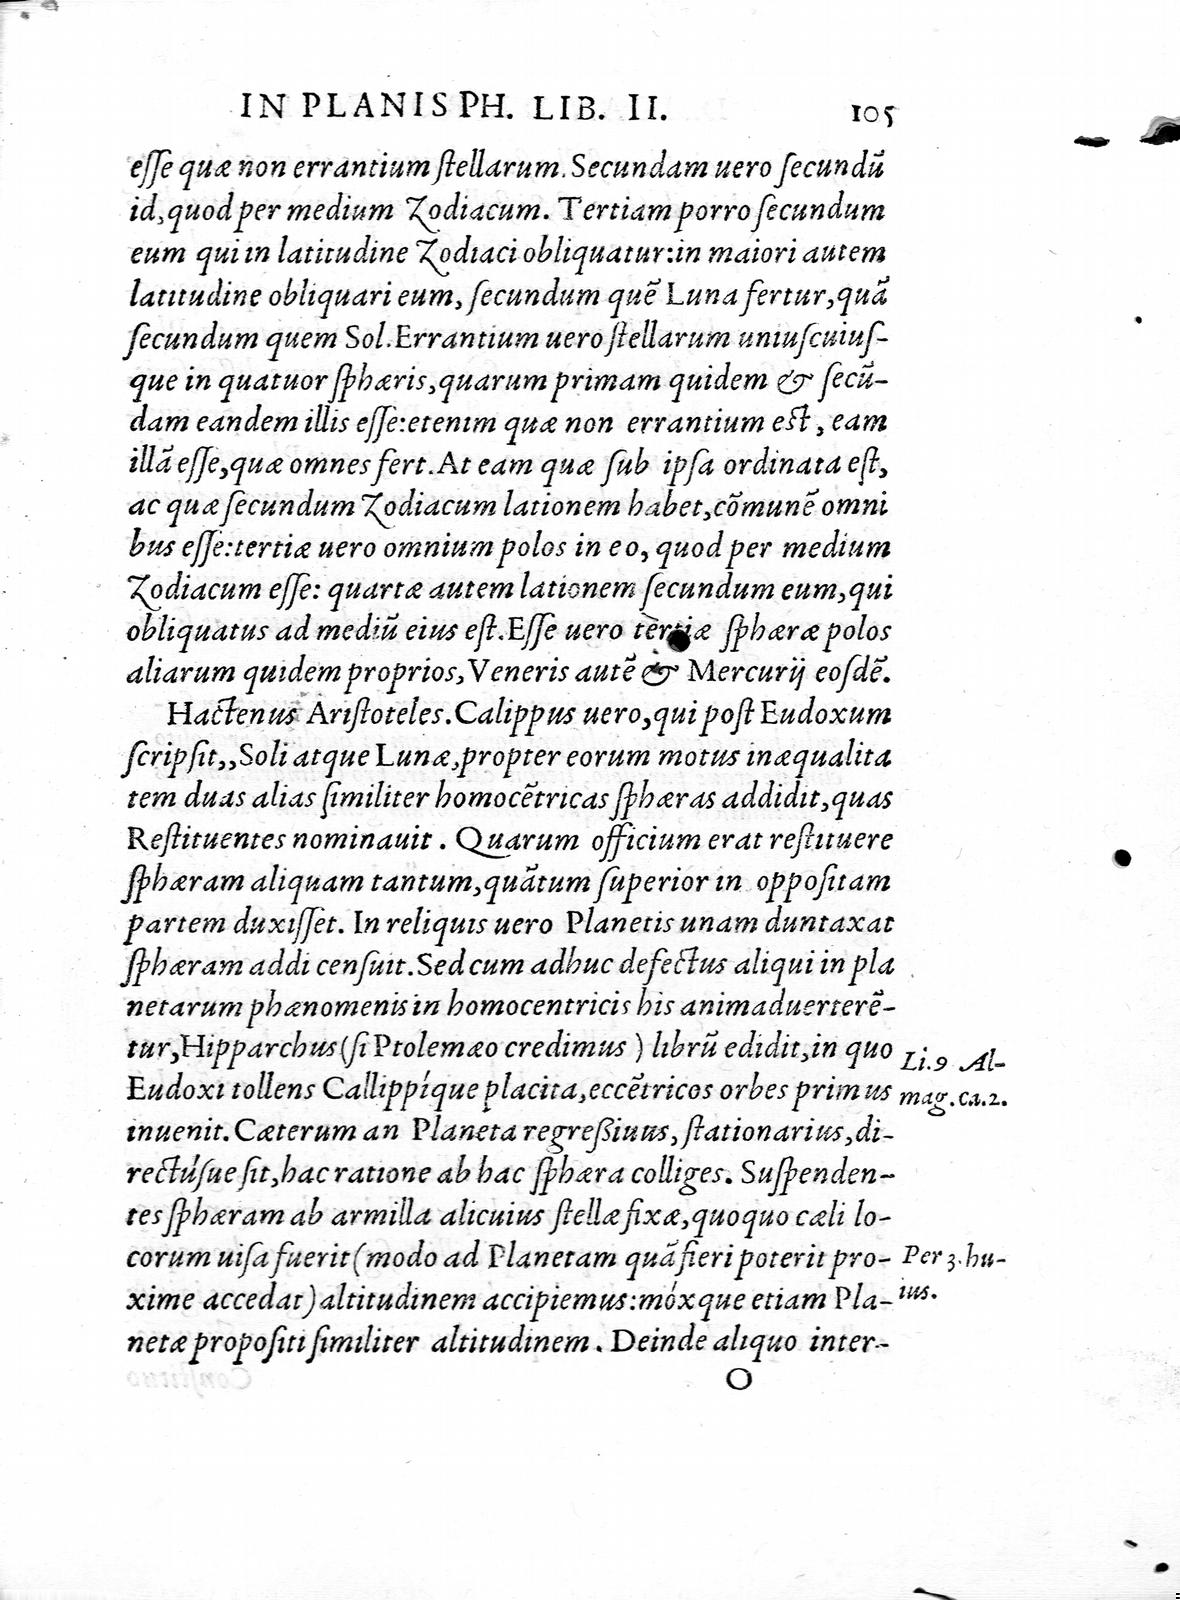 IN PLANISPH. LIB. II. 105
esse quæ non errantium stellarum. Secundam uero secundū
id, quod per medium Zodiacum. Tertiam porro secundum
eum qui in latitudine Zodiaci obliquatur: in maiori autem
latitudine obliquari eum, secundum quē Luna fertur, quā
secundum quem Sol. Errantium uero stellarum uniuscuius-
que in quatuor sphæris, quarum primam quidem & secū-
dam eandem illis esse: etenim quæ non errantium est, eam
illā esse, quæ omnes fert. At eam quæ sub ipsa ordinata est,
ac quæ secundum Zodiacum lationem habet, cōmunē omni
bus esse: tertiæ uero omnium polos in eo, quod per medium
Zodiacum esse: quartæ autem lationem secundum eum, qui
obliquatus ad mediū eius est. Esse uero tertiæ sphæræ polos
aliarum quidem proprios, Veneris autē & Mercurij eosdē.
Hactenus Aristoteles. Calippus uero, qui post Eudoxum
scripsit,, Soli atque Lunæ, propter eorum motus inæqualita
tem duas alias similiter homocētricas sphæras addidit, quas
Restituentes nominauit. Quarum officium erat restituere
sphæram aliquam tantum, quātum superior in oppositam
partem duxisset. In reliquis uero Planetis unam duntaxat
sphæram addi censuit. Sed cum adhuc defectus aliqui in pla
netarum phænomenis in homocentricis his animaduerterē-
tur, Hipparchus (si Ptolemæo credimus) librū edidit, in quo
Li. 9 Al-
Eudoxi tollens Callippíque placita, eccētricos orbes primus
mag. ca. 2.
inuenit. Cæterum an Planeta regressiuus, stationarius, di-
rectúsue sit, hac ratione ab hac sphæra colliges. Suspenden-
tes sphæram ab armilla alicuius stellæ fixæ, quoquo cæli lo-
corum uisa fuerit (modo ad Planetam quā fieri poterit pro-
Per 3. hu-
xime accedat) altitudinem accipiemus: móxque etiam Pla-
ius.
netæ propositi similiter altitudinem. Deinde aliquo inter-
O